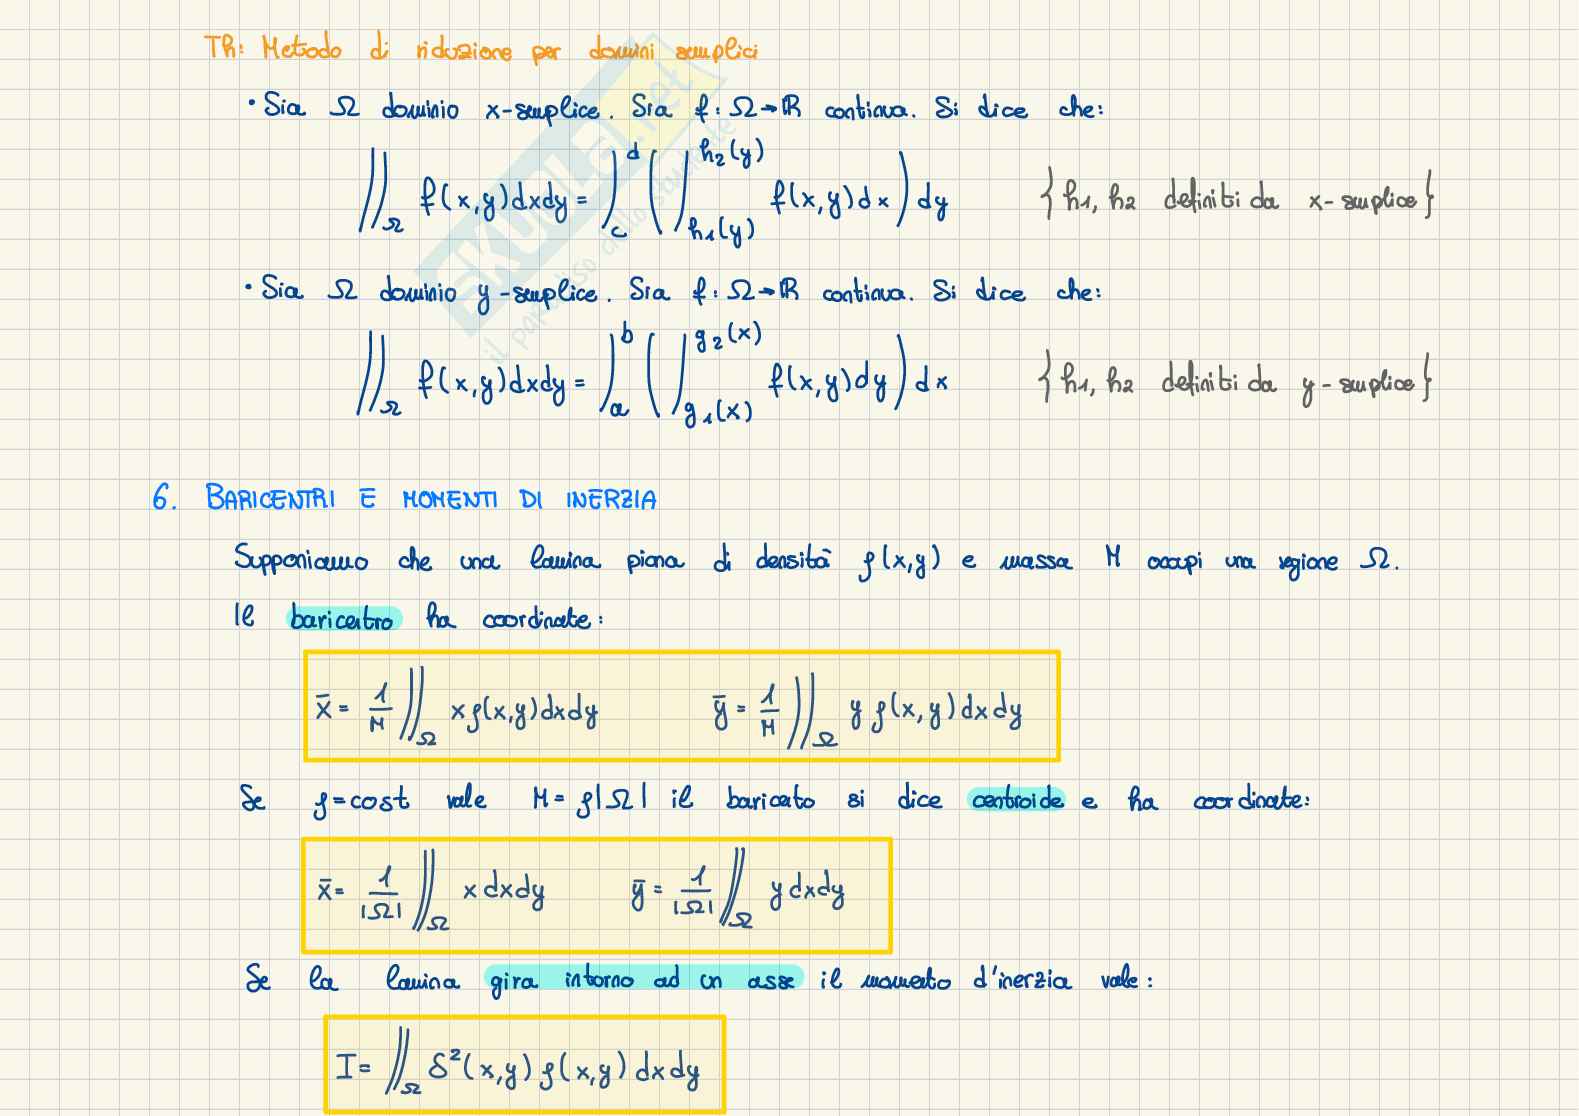 Th: Metodo di riduzione per domini semplici
• Sia Ω dominio x-semplice. Sia f: Ω→ℝ continua. Si dice che:
∬_Ω f(x,y)dxdy = ∫_c^d (∫_{h1(y)}^{h2(y)} f(x,y)dx) dy {h1, h2 definiti da x-semplice}
• Sia Ω dominio y-semplice. Sia f: Ω→ℝ continua. Si dice che:
∬_Ω f(x,y)dxdy = ∫_a^b (∫_{g1(x)}^{g2(x)} f(x,y)dy) dx {h1, h2 definiti da y-semplice}
6. BARICENTRI E MOMENTI DI INERZIA
Supponiamo che una lamina piana di densità ρ(x,y) e massa M occupi una regione Ω.
Il baricentro ha coordinate:
x̄ = 1/M ∬_Ω xρ(x,y)dxdy ȳ = 1/M ∬_Ω yρ(x,y)dxdy
Se ρ=cost vale M=ρ|Ω| il baricentro si dice centroide e ha coordinate:
x̄ = 1/|Ω| ∬_Ω x dxdy ȳ = 1/|Ω| ∬_Ω y dxdy
Se la lamina gira intorno ad un asse il momento d'inerzia vale:
I = ∬_Ω δ²(x,y) ρ(x,y) dxdy
SKUOLA.net
il paradiso dello studente